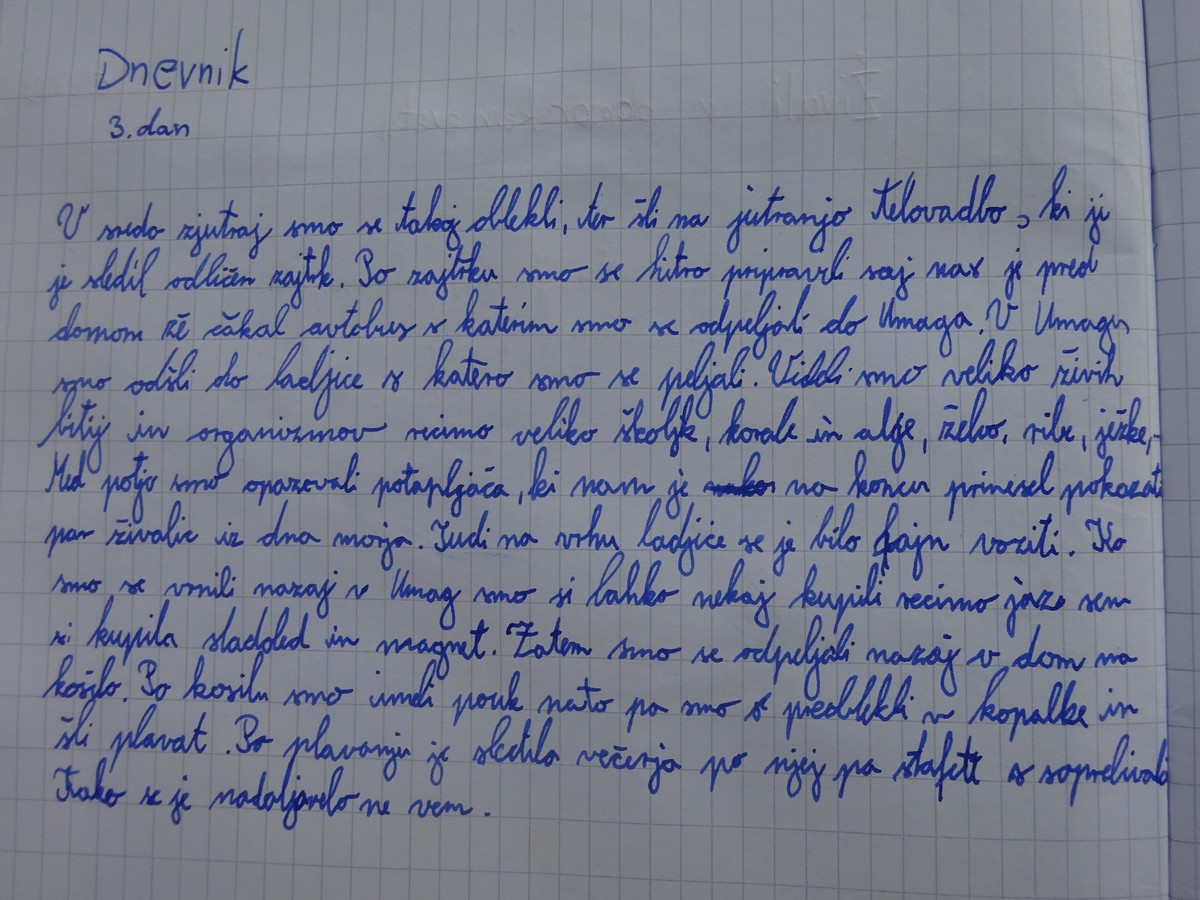 Dnevnik
3. dan
V sredo zjutraj smo se takoj oblekli, ter šli na jutranjo telovadbo, ki ji
je sledil odličen zajtrk. Po zajtrku smo se hitro pripravili saj nas je pred
domom že čakal avtobus s katerim smo se odpeljali do Umaga. V Umagu
smo odšli do ladjice s katero smo se peljali. Videli smo veliko živih
bitij in organizmov recimo veliko školjk, korale in alge, želvo, ribe, ježke,
Med potjo smo opazovali potapljača, ki nam je na koncu prinesel pokazati
par živalic iz dna morja. Tudi na vrhu ladjice se je bilo fajn voziti. Ko
smo se vrnili nazaj v Umag smo si lahko nekaj kupili recimo jaz sem
si kupila sladoled in magnet. Zatem smo se odpeljali nazaj v dom na
kosilo. Po kosilu smo imeli pouk nato pa smo se preoblekli v kopalke in
šli plavat. Po plavanju je sledila večerja po njej pa štafete s
Kako se je nadaljevalo ne vem.